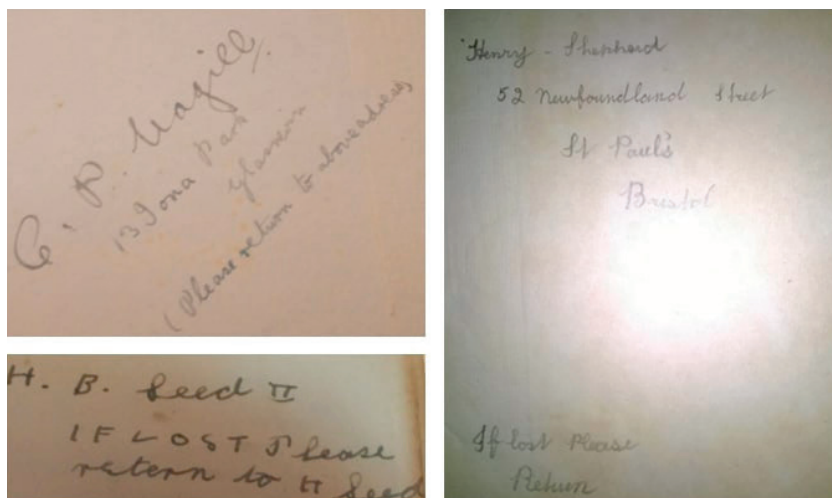 C. P. Magill.
13 Iona Park
Glasnevin
(Please return to above address
H. B. Seed II
IF LOST Please
retern to H Seed
Henry - Shephard
52 Newfoundland Street
St Paul's
Bristol
If lost Please
Return